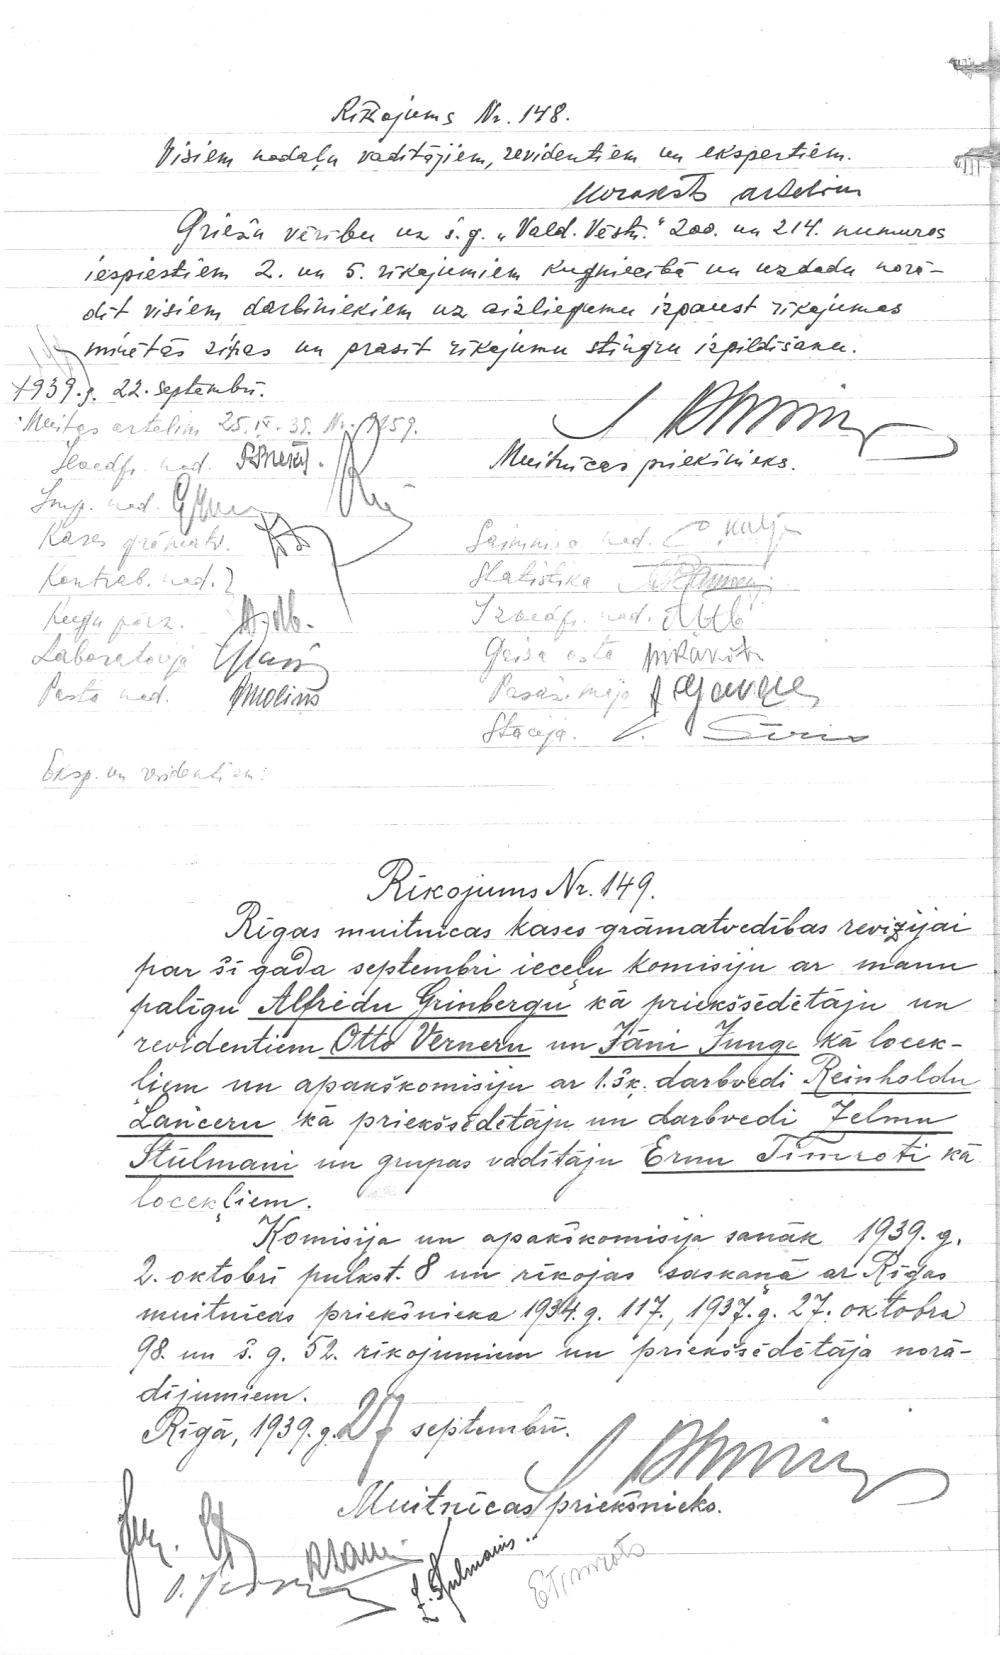 Rīkojums Nr. 148.
Visiem nodaļu vadītājiem, revidentiem un ekspertiem.
Noraksts artelim
Griežu vērību uz š.g. „Vald. Vēstn." 200. un 214. numuros
iespiestiem 2. un 5. rīkojumiem kuģniecībā un uzdodu norā-
dīt visiem darbiniekiem uz aizliegumu izpaust rīkojumos
minētās ziņas un prasīt rīkojumu stingru izpildīšanu.
1939.g. 22. septembrī.
Muitas artelim 25.IX-39. Nr.
Muitnīcas priekšnieks.
Ievedfr. nod.
Imp. nod.
Kases grāmatv.
Saimniec. nod.
Kontrab. nod.
Statistika
Kuģu pārz.
Izvedfr. nod.
Laboratorijā
Gaisa osta
Pasta nod.
Pasaž. māja
Stacija.
Eksp. un revidentiem:
Rīkojums Nr. 149.
Rīgas muitnīcas kases grāmatvedības revīzijai
par šī gada septembri ieceļu komisiju ar manu
palīgu Alfrēdu Grīnbergu kā priekšsēdētāju un
revidentiem Otto Verneru un Jāni Jungu kā locek-
ļiem un apakškomisiju ar 1. šķ. darbvedi Reinholdu
Lanceru kā priekšsēdētāju un darbvedi Zelmu
Stūlmani un grupas vadītāju Ernu Tīmroti kā
locekļiem.
Komisija un apakškomisija sanāk 1939. g.
2. oktobrī pulkst. 8 un rīkojas saskaņā ar Rīgas
muitnīcas priekšnieka 1934.g. 117., 1937.g. 27. oktobra
98. un š. g. 52. rīkojumiem un priekšsēdētāja norā-
dījumiem.
Rīgā, 1939.g. 27 septembrī.
Muitnīcas priekšnieks.
Z. Stulmanis
E Timrots